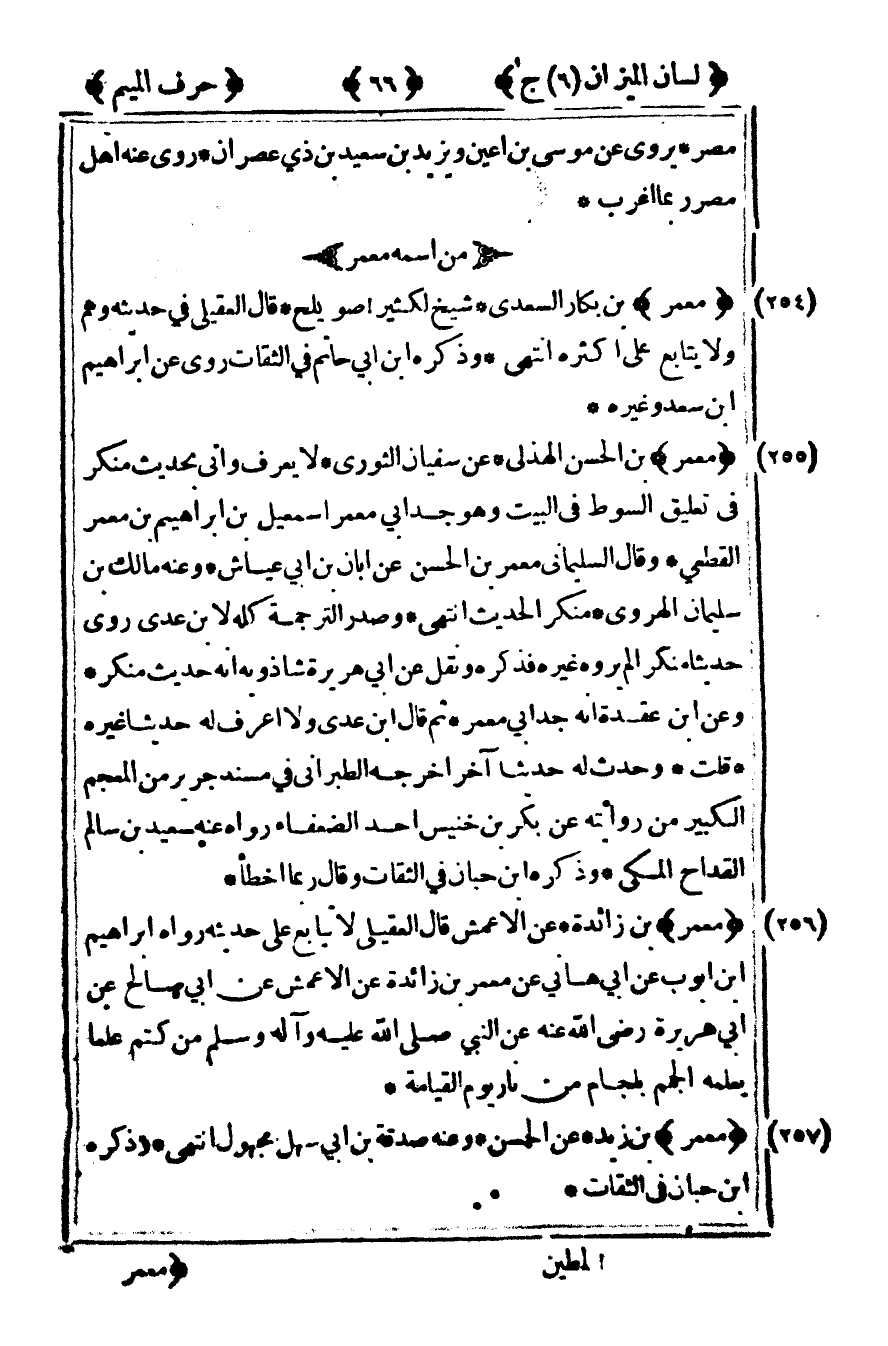 ﴿ لسان الميزان (٦) ج ﴾ ﴿ ٦٦ ﴾ ﴿ حرف الميم ﴾
مصر * يروى عن موسى بن اعين ويزيد بن سعيد بن ذي عصران * روى عنه اهل
مصر ربما اغرب *
﴿ من اسمه معمر ﴾
(٢٥٤) ﴿ معمر ﴾ بن بكار السعدى * شيخ لكثير ١ صويلح * قال العقيلي في حديثه وهم
ولا يتابع على اكثره انتهى * وذكره ابن ابي حاتم في الثقات روى عن ابراهيم
ابن سعد وغيره *
(٢٥٥) ﴿ معمر ﴾ بن الحسن الهذلى * عن سفيان الثورى * لا يعرف واتى بحديث منكر
فى تعليق السوط فى البيت وهو جد ابي معمر اسمعيل بن ابراهيم بن معمر
القطيمي * وقال السليمانى معمر بن الحسن عن ابان بن ابي عياش * وعنه مالك بن
سليمان الهروى * منكر الحديث انتهى * وصدر الترجمة كله لابن عدى روى
حديثا منكرا لم يروه غيره فذكره ونقل عن ابي هريرة شاذويه انه حديث منكر *
وعن ابن عقدة انه جد ابي معمر * ثم قال ابن عدى ولا اعرف له حديثا غيره
* قلت * وحدث له حديثا آخر اخرجه الطبرانى في مسند جرير من المعجم
الكبير من روايته عن بكر بن خنيس احد الضعفاء رواه عنه سعيد بن سالم
القداح المكى * وذكره ابن حبان في الثقات وقال ربما اخطأ *
(٢٥٦) ﴿ معمر ﴾ بن زائدة * عن الاعمش قال العقيلى لا يتابع على حديثه رواه ابراهيم
ابن ايوب عن ابي هاني عن معمر بن زائدة عن الاعمش عن ابي صالح عن
ابي هريرة رضى الله عنه عن النبي صلى الله عليه وآله وسلم من كتم علما
يعلمه الجم بلجام من نار يوم القيامة *
(٢٥٧) ﴿ معمر ﴾ بن زيد * عن الحسن * وعنه صدقة بن ابي سهل مجهول انتهى * وذكره
ابن حبان فى الثقات *
١ لمطين
﴿ معمر